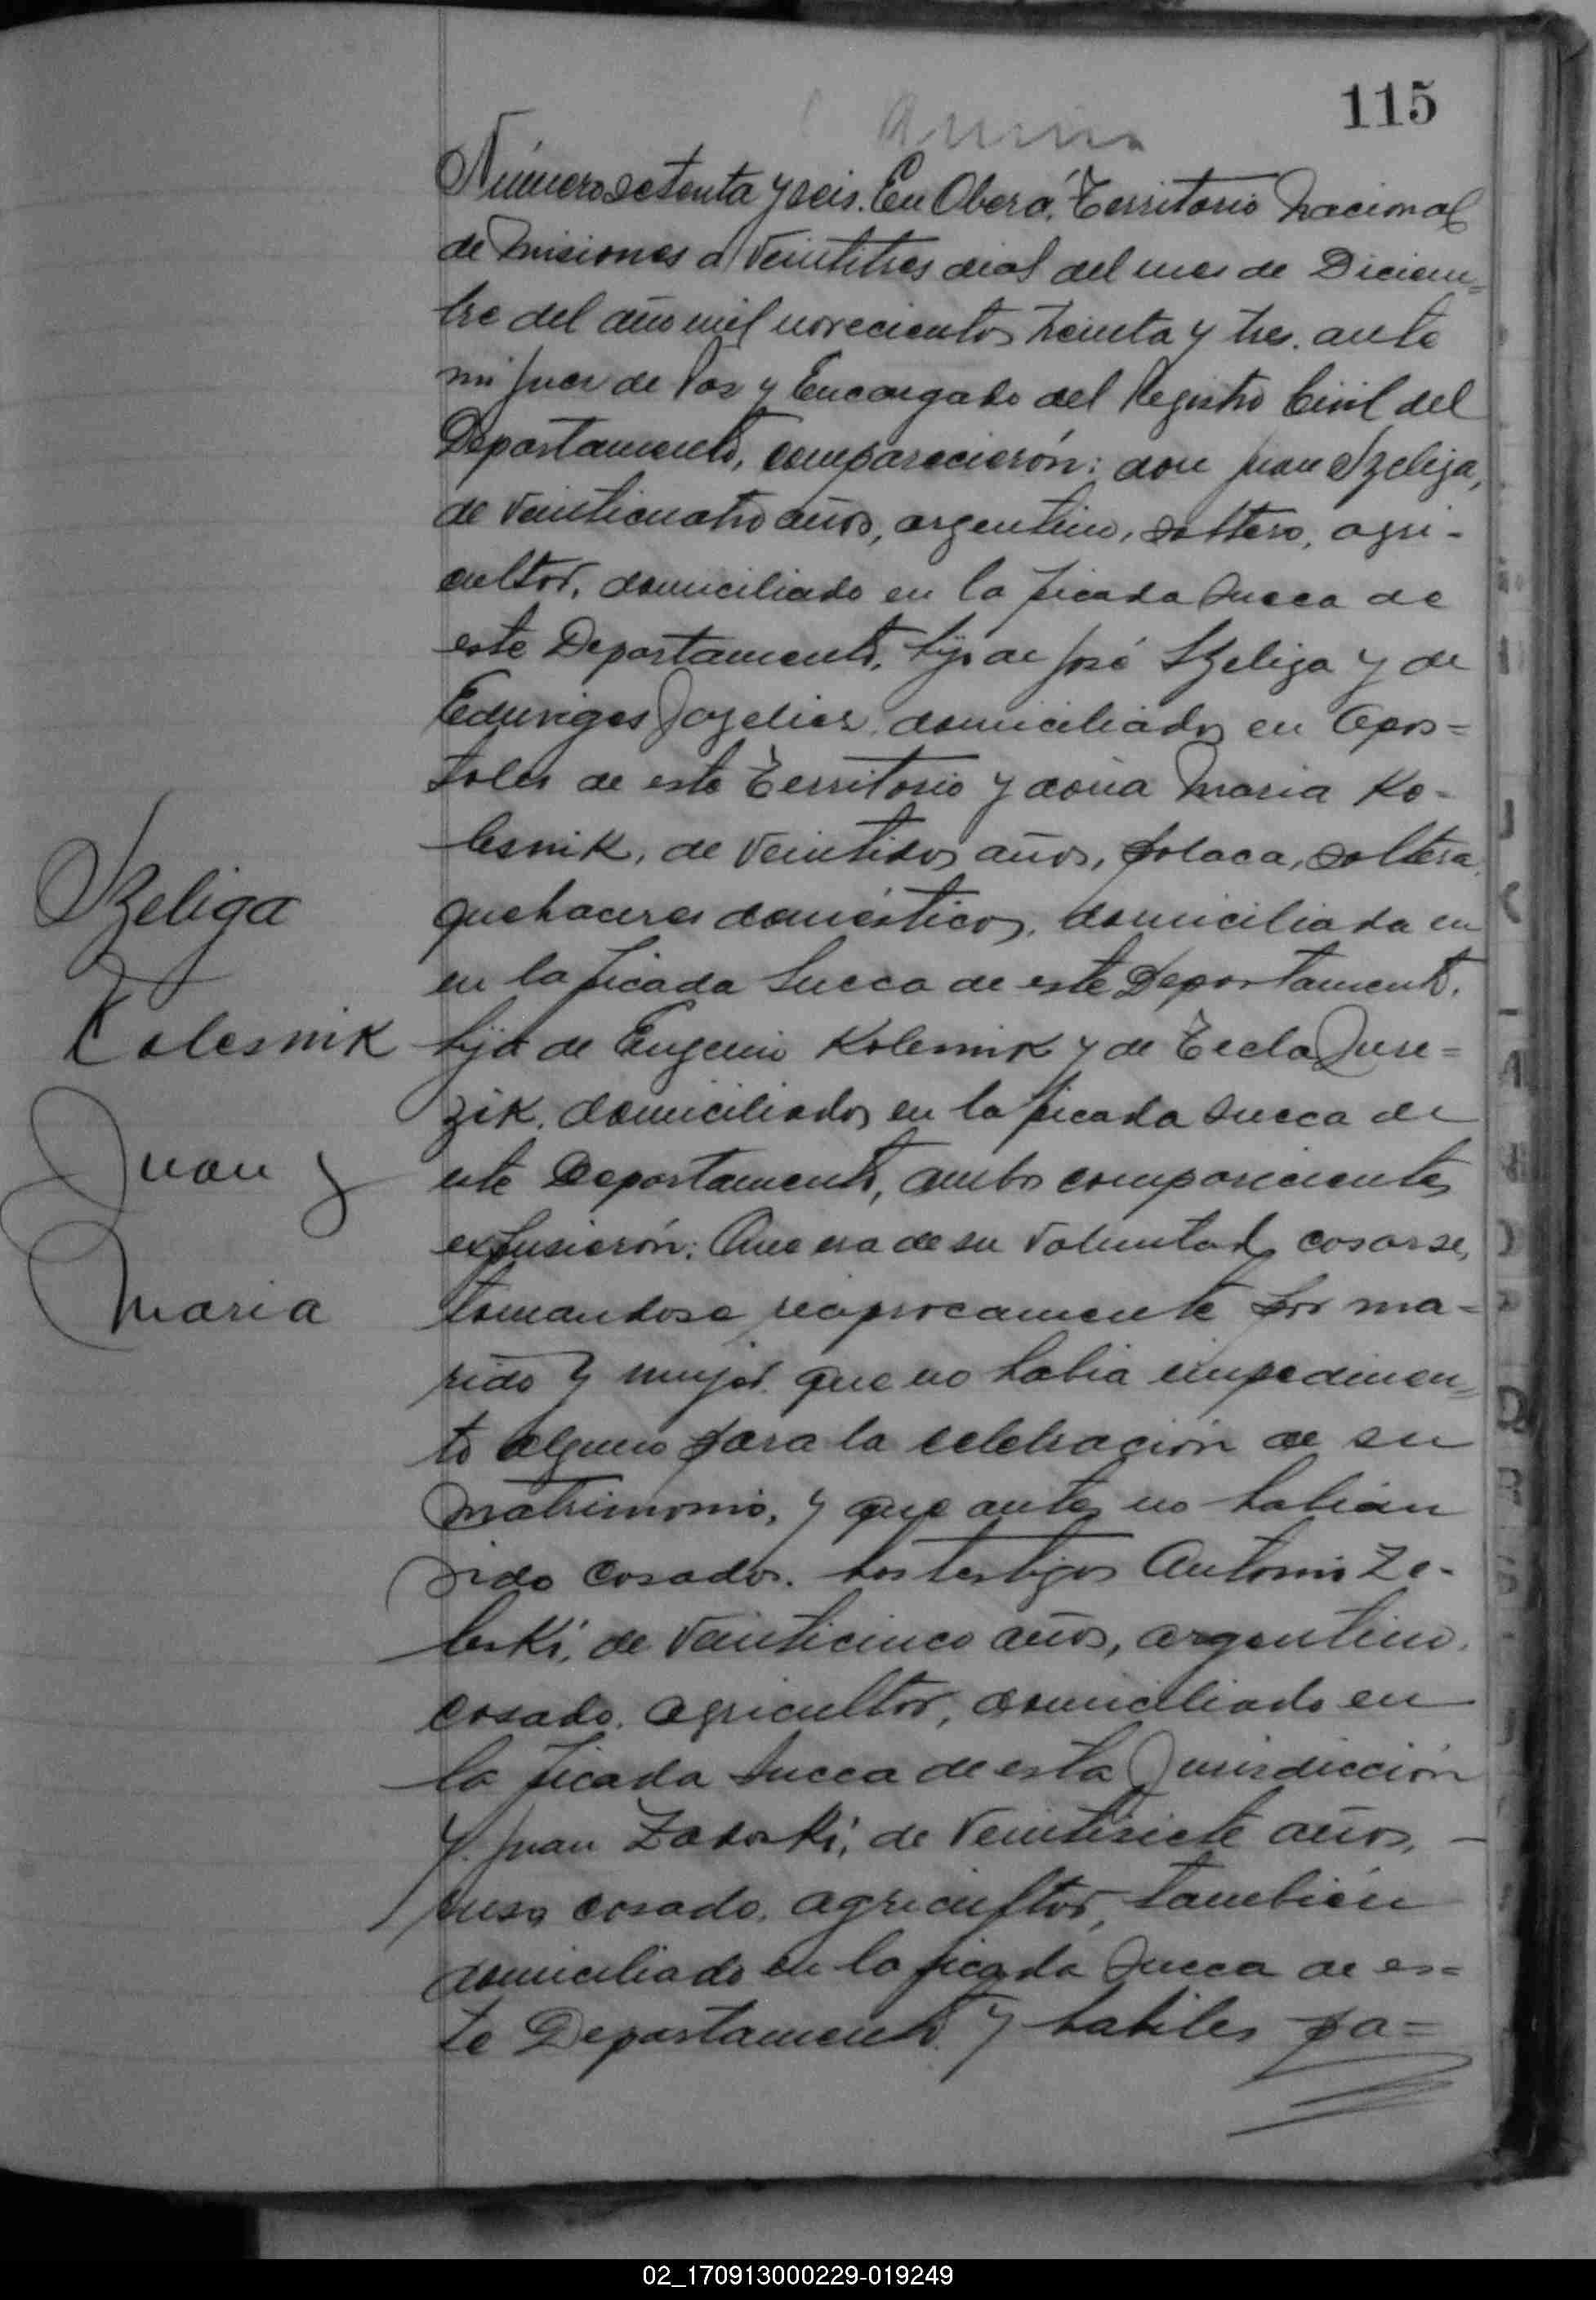 115
Número setenta y seis. En Oberá, Territorio Nacional
de Misiones a veintitres dias del mes de Diciem=
bre del año mil novecientos treinta y tres. ante
mi Juez de Paz y Encargado del Registro Civil del
Departamento, comparecierón: don Juan Szeliga,
de veinticuatro años, argentino, soltero, agri-
cultor, domiciliado en la picada Sueca de
este Departamento, hijo de José Szeliga y de
Eduviges domiciliados en Apos=
toles de este Territorio y doña Maria Ko-
lesnik, de veintidos años, polaca, soltera,
quehaceres domésticos, domiciliada en
en la picada Sueca de este Departamento,
hija de Eugenio Kolesnik y de Tecla Juse=
zik, domiciliados en la picada Sueca de
este Departamento, ambos comparecientes
expusierón: Que era de su voluntad casarse,
tomandose reciprocamente por ma=
rido y mujer que no habia impedimen=
to alguno para la celebración de su
matrimonio, y que antes no habian
sido casados. Los testigos Antonio Ze-
leski, de veinticinco años, argentino,
casado, agricultor, domiciliado en
la picada Sueca de esta Jurisdicción
y Juan Zadoski, de veintisiete años, —
ruso casado, agricultor, también
domiciliado en la picada Sueca de es=
te Departamento y habiles pa=
Szeliga
Kolesnik
Juan y
Maria
02_170913000229-019249